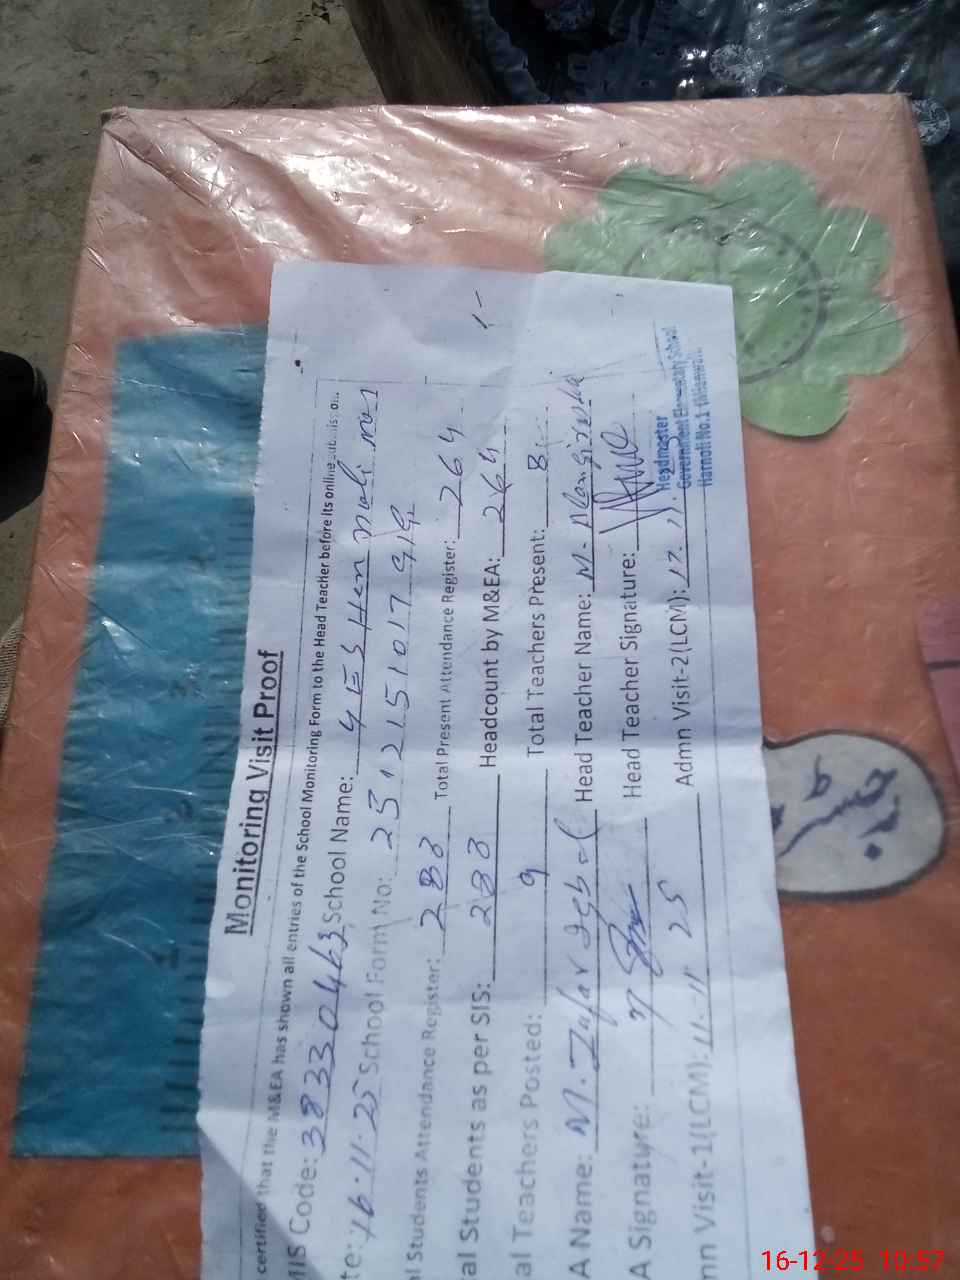 Monitoring Visit Proof
certified that the M&EA has shown all entries of the School Monitoring Form to the Head Teacher before its online
MIS Code: 38330463 School Name: GES Harnoli no 1
te: 16.11.25 School Form No:
al Students Attendance Register: 288 Total Present Attendance Register: 264
al Students as per SIS: 288 Headcount by M&EA: 264
al Teachers Posted: 9 Total Teachers Present: 8
A Name: M. Zafar Iqbal Head Teacher Name: M.
A Signature: Head Teacher Signature:
mn Visit-1(LCM): 11.11 25 Admn Visit-2(LCM): 17.11.
Headmaster
Government Elementary School
Harnoli No.1 (Mianwali)
16-12-25 10:57